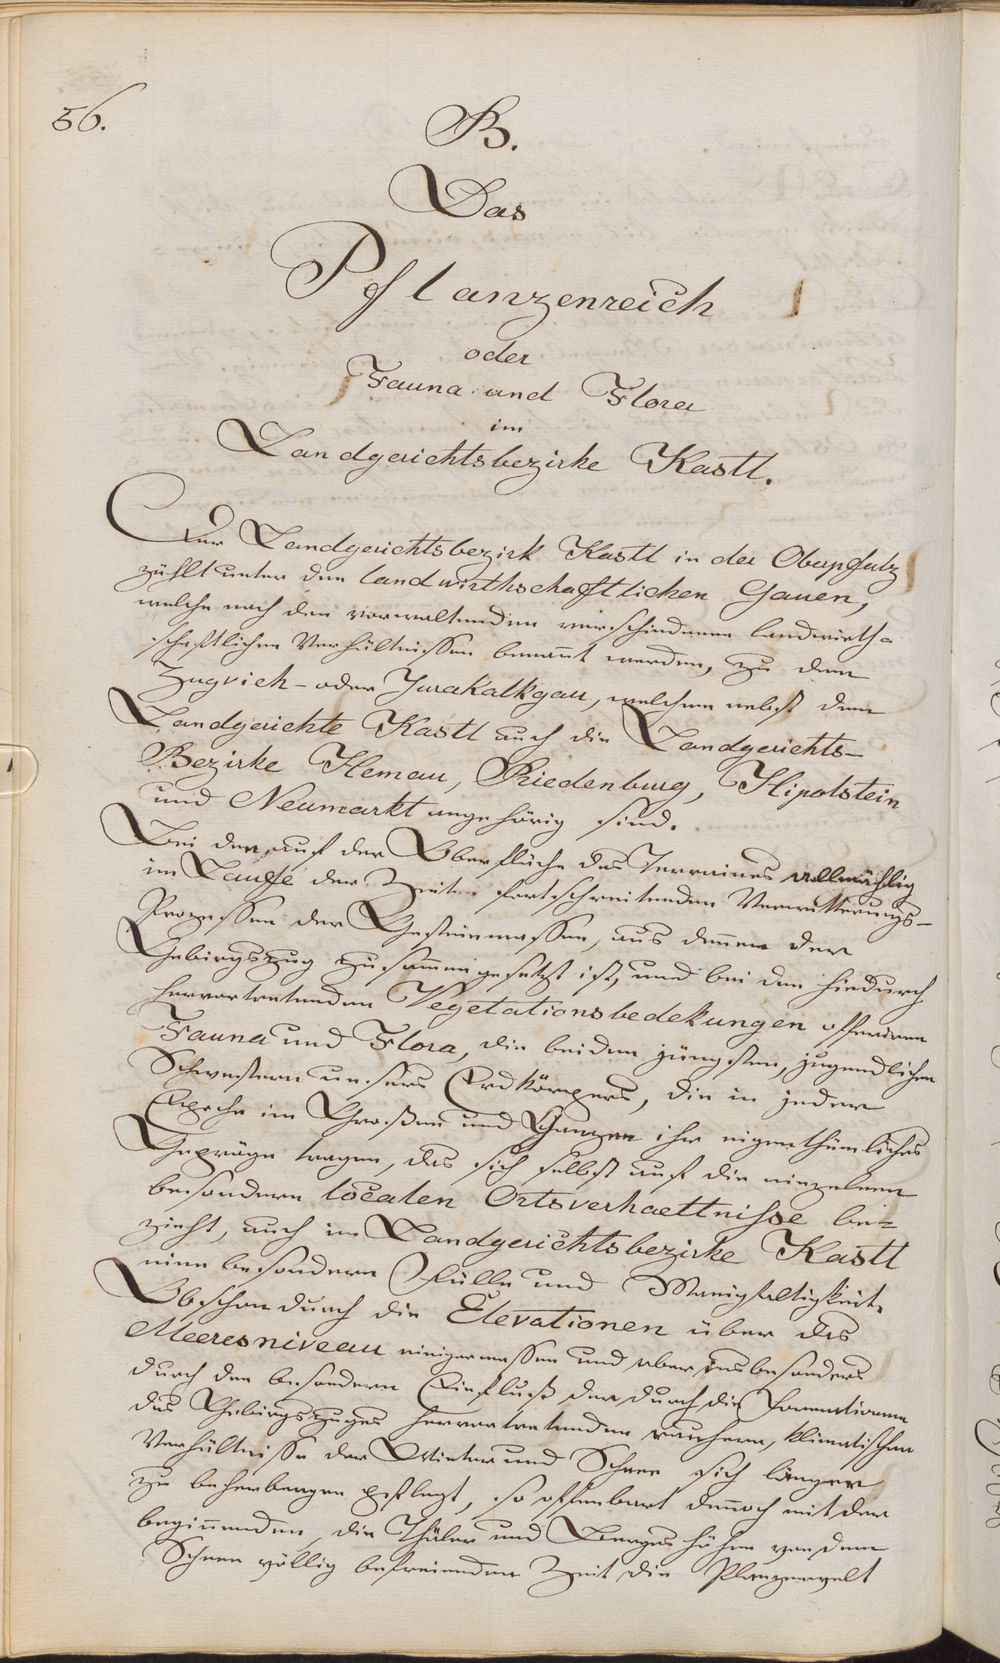 56.
B.
Das
Pflanzenreich
oder
Fauna und Flora
im
Landgerichtsbezirke Kastl.
Der Landgerichtsbezirk Kastl in der Oberpfalz
zählt unter den landwirthschaftlichen Gauen,
welche nach den vorwaltenden verschiedenen landwirth-
schaftlichen Verhältnissen benannt werden, zu dem
Zugvieh- oder Jurakalkgau, welchem nebst dem
Landgerichte Kastl auch die Landgerichts-
Bezirke Hemau, Riedenburg, Hipolstein
und Neumarkt angehörig sind.
Bei den auf der Oberfläche des Terraines allmählig
im Laufe der Zeiten fortschreitenden Verwitterungs-
Prozessen der Gesteinmassen, aus denen der
Gebirgszug zusammengesetzt ist, und bei den hiedurch
hervortretenden Vegetationsbedekungen offeriren
Fauna und Flora, die beiden jüngsten, jugendlichen
Schwestern unsers Erdkörpers, die in jeder
Epoche im Großen und Ganzen ihr eigenthümliches
Gepräge tragen, das sich selbst auf die einzelnen
besondern localen Ortsverhaeltnisse be-
zieht, auch im Landgerichtsbezirke Kastl
eine besondere Fülle und Manigfaltigkeit.
Obschon durch die Elevationen über das
Meeresniveau einigermassen und aber insbesonders
durch den besondern Einfluß der durch die Formationen
des Gebirgszuges hervortretenden rauhern, klimatischen
Verhältnisse der Winter und Schnee sich länger
zu beherbergen pflegt, so offenbart dennoch mit der
beginnenden, die Thäler und Bergeshöhen von dem
Schnee völlig befreienden Zeit die Planzenwelt